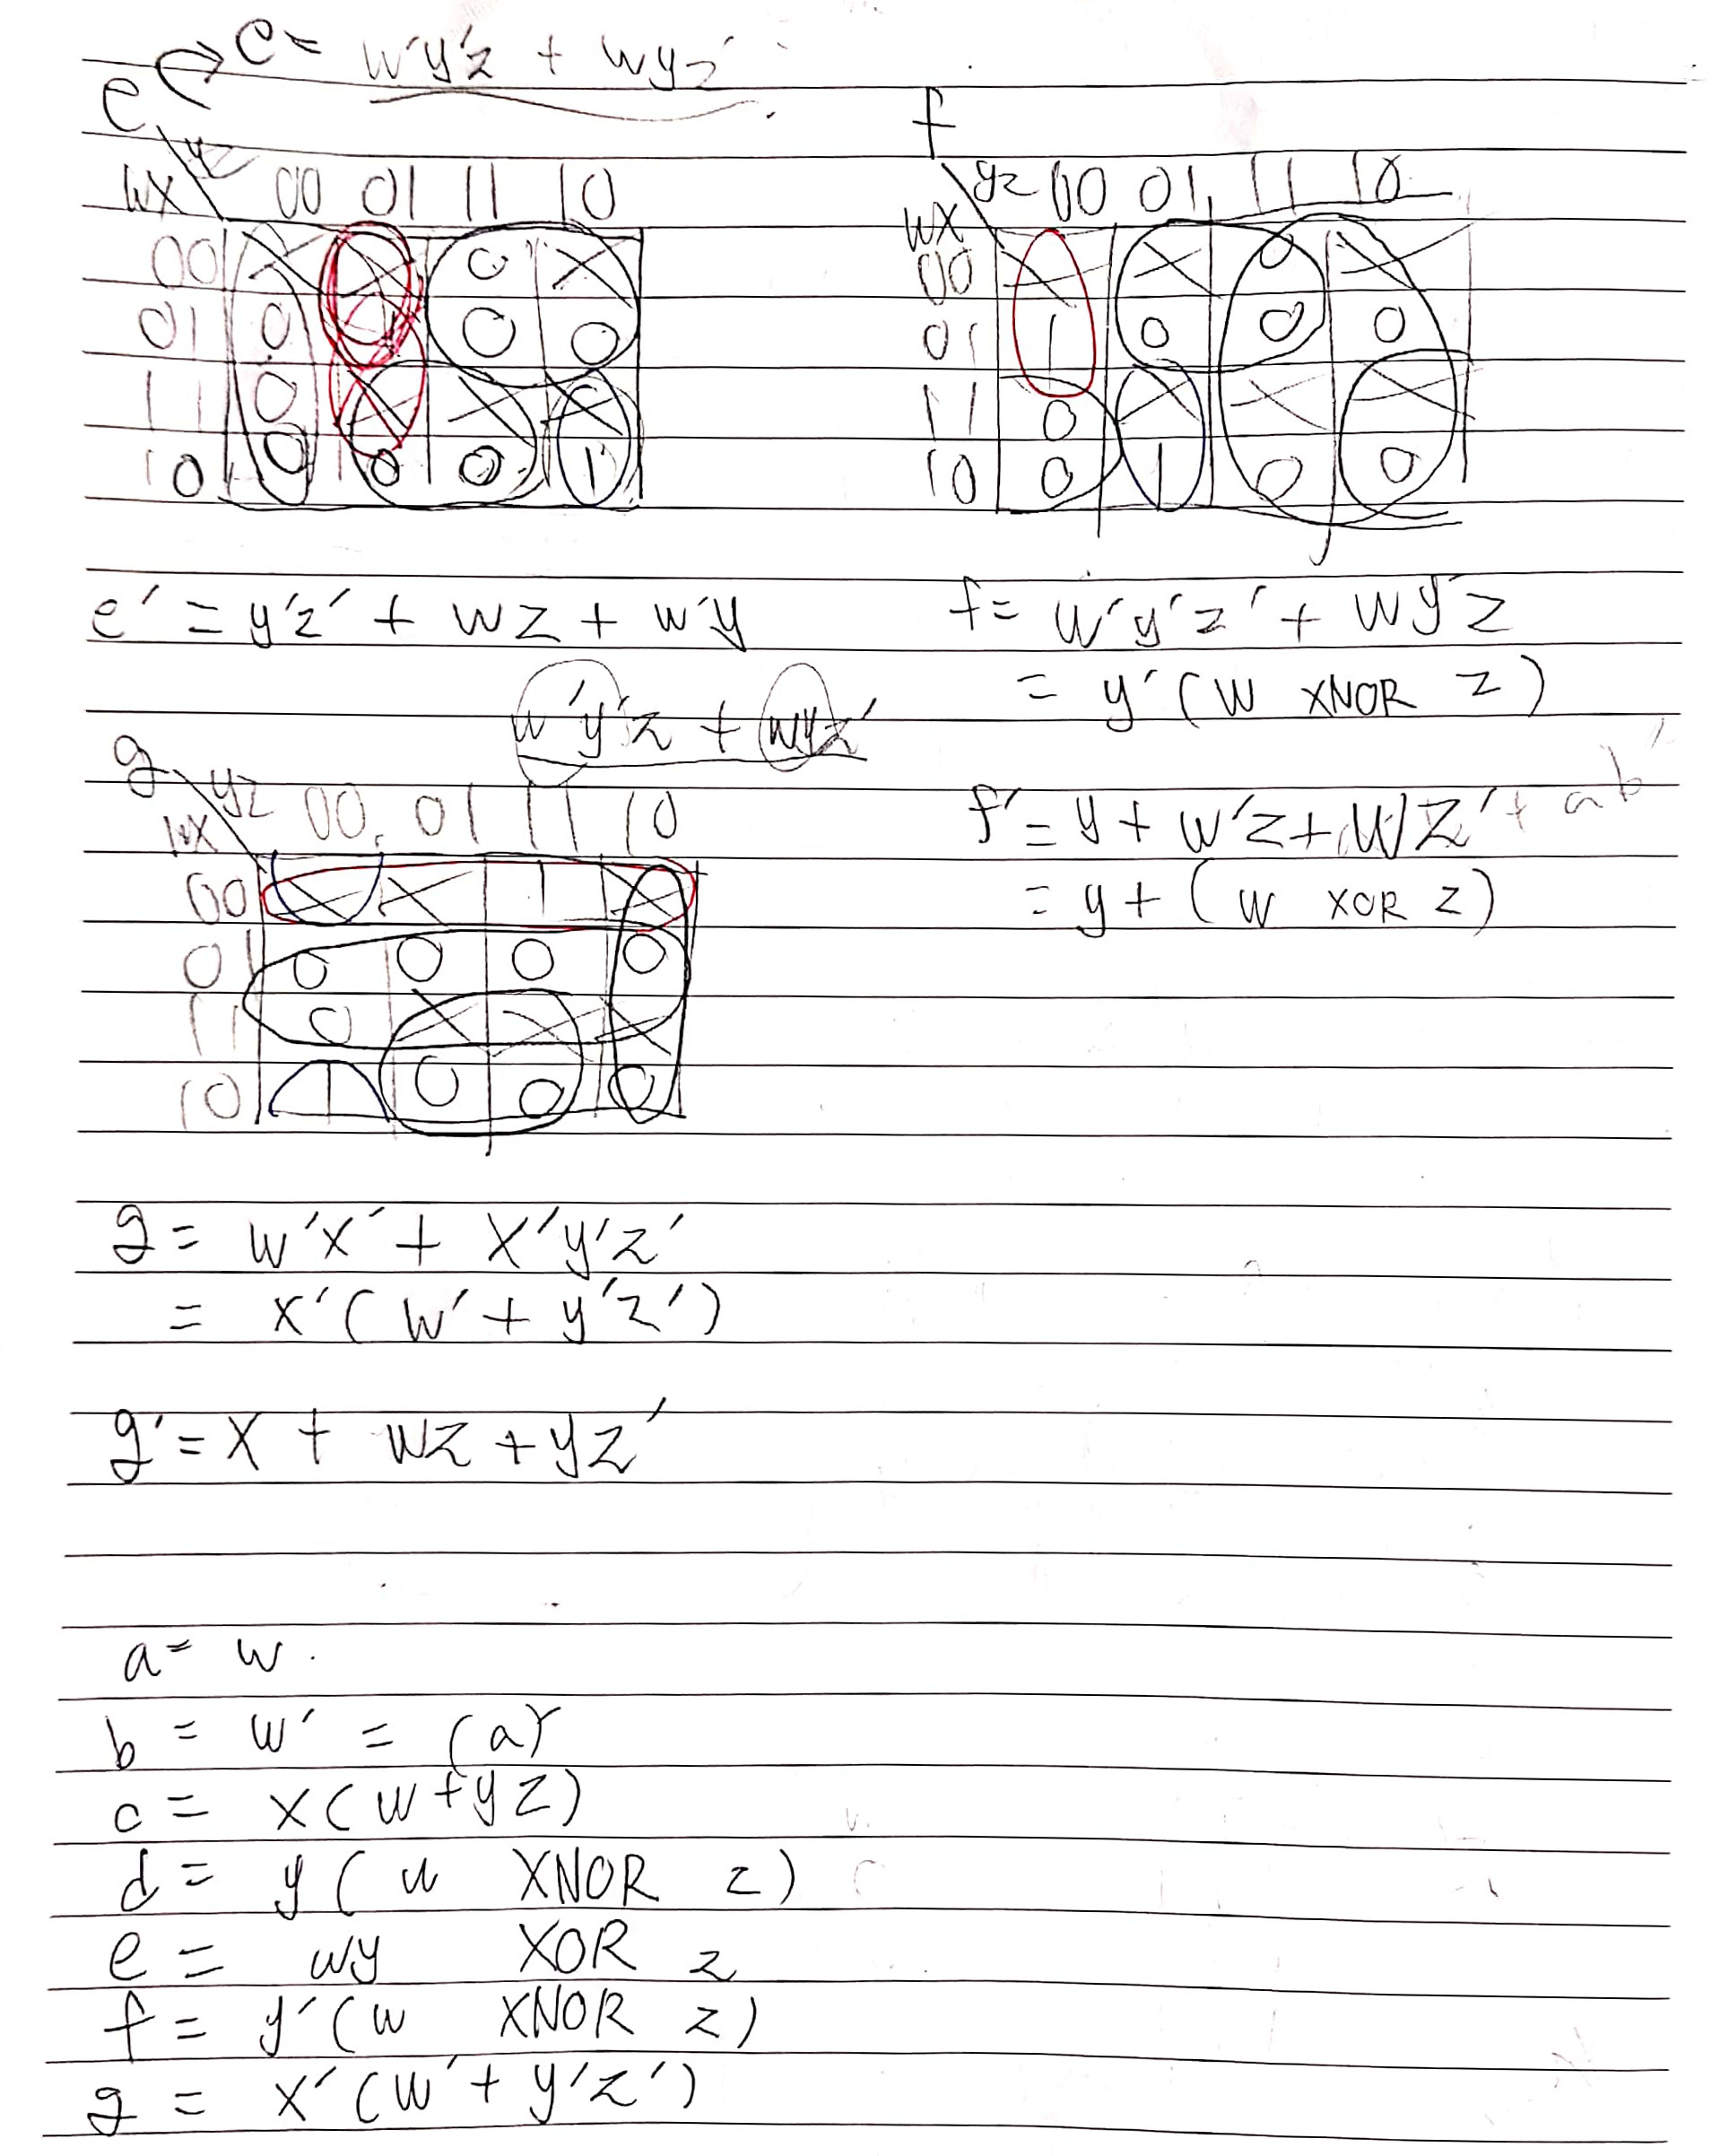 e = w'y'z + wyz'
e
yz
wx 00 01 11 10
00 X X 0 X
01 0 1 0 0
11 0 X X X
10 0 0 0 1
e' = y'z' + wz + w'y
w'y'z + wyz'
f
yz 00 01 11 10
wx
00 X X 0 X
01 1 0 0 0
11 0 X X X
10 0 1 0 0
f = w'y'z' + wy'z
= y'(w XNOR z)
f' = y + w'z + wz' + ab'
= y + (w XOR z)
g
yz 00 01 11 10
wx
00 X X 1 X
01 0 0 0 0
11 0 X X X
10 1 0 0 0
g = w'x' + x'y'z'
= x'(w' + y'z')
g' = x + wz + yz'
a = w.
b = w' = (a)'
c = x(w+yz)
d = y(w XNOR z)
e = wy XOR z
f = y'(w XNOR z)
g = x'(w' + y'z')